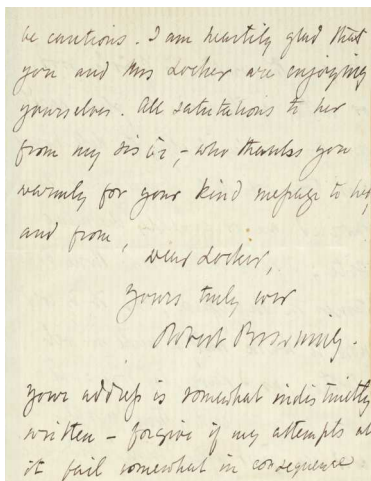 be cautious. I am heartily glad that
you and Mrs Locker are enjoying
yourselves. All salutations to her
from my sister, – who thanks you
warmly for your kind message to her,
and from,
Dear Locker,
Yours truly ever
Robert Browning.
Your address is somewhat indistinctly
written – forgive if my attempts at
it fail somewhat in consequence